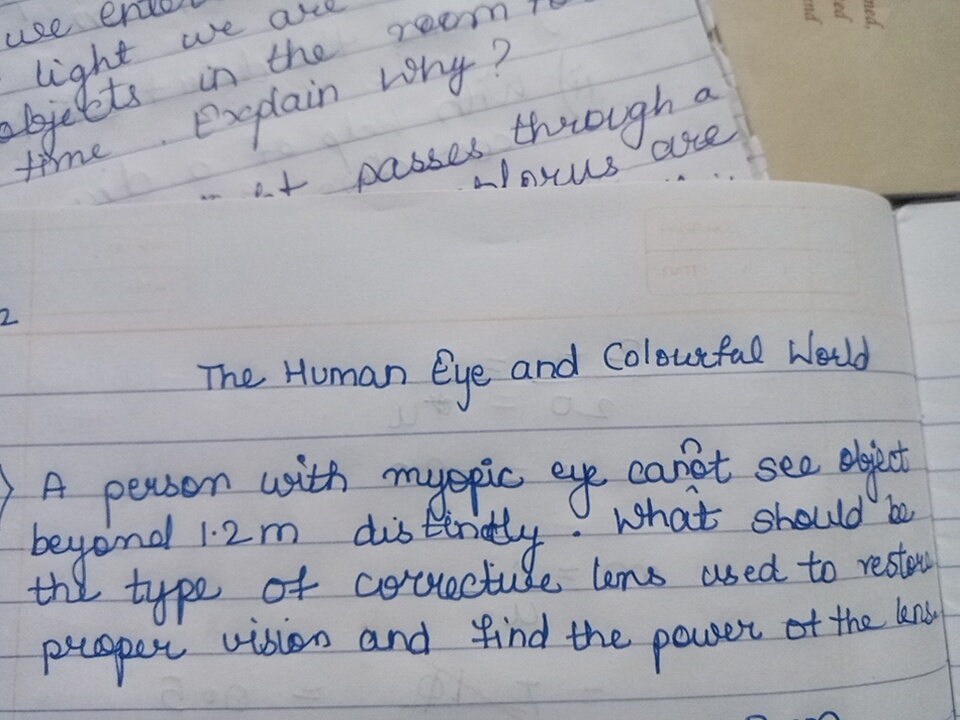 we
light we are
objects in the room
time. Explain why?
passes through a
are
2
The Human Eye and Colourful World
A person with myopic eye canot see object
beyond 1.2m distinctly. What should be
the type of corrective lens used to restore
proper vision and find the power of the lens.